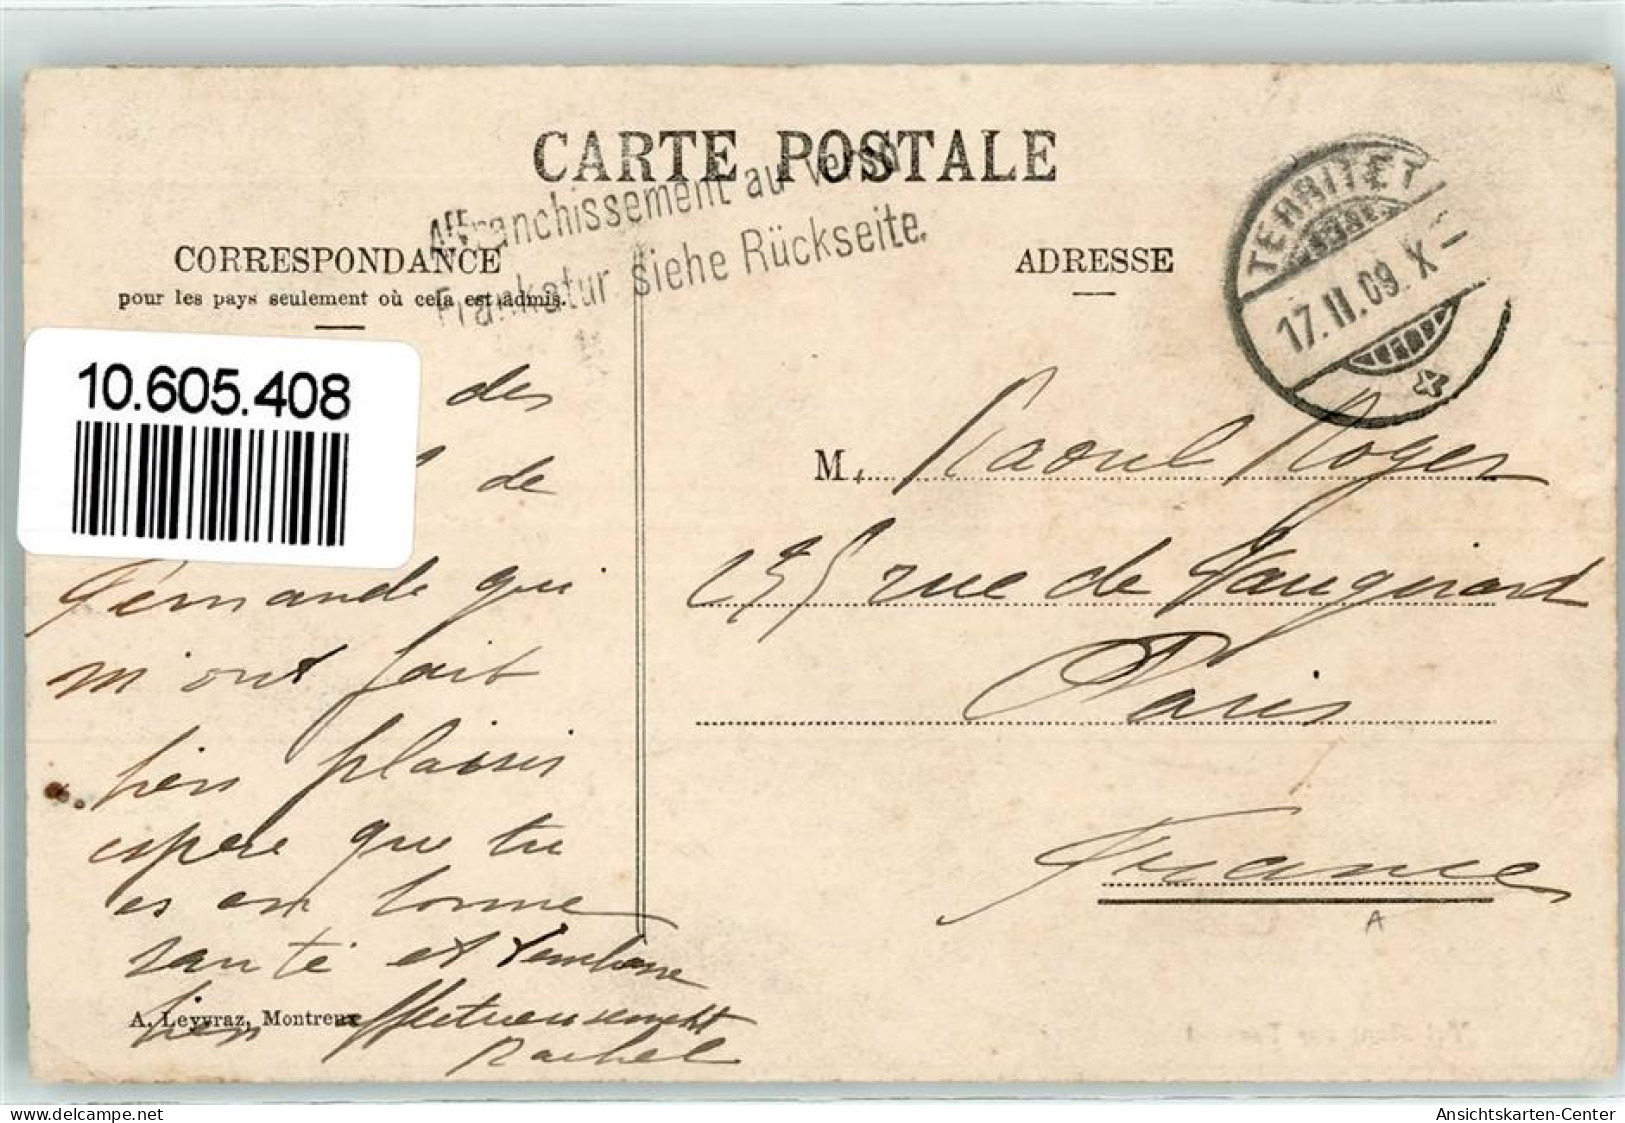 CARTE POSTALE
Affranchissement au verso
Frankatur siehe Rückseite.
CORRESPONDANCE
pour les pays seulement où cela est admis.
ADRESSE
TERRITET
17.II.09. X
10.605.408
des
de
Fernande qui
m'ont fait
bien plaisir
espere que tu
es en bonne
santé et t'embrasse
bien affectueusement
Rachel
A. Leyvraz, Montreux
M. Raoul Roger
255 rue de Vaugirard
Paris
France
A
delcampe.net
Ansichtskarten-Center